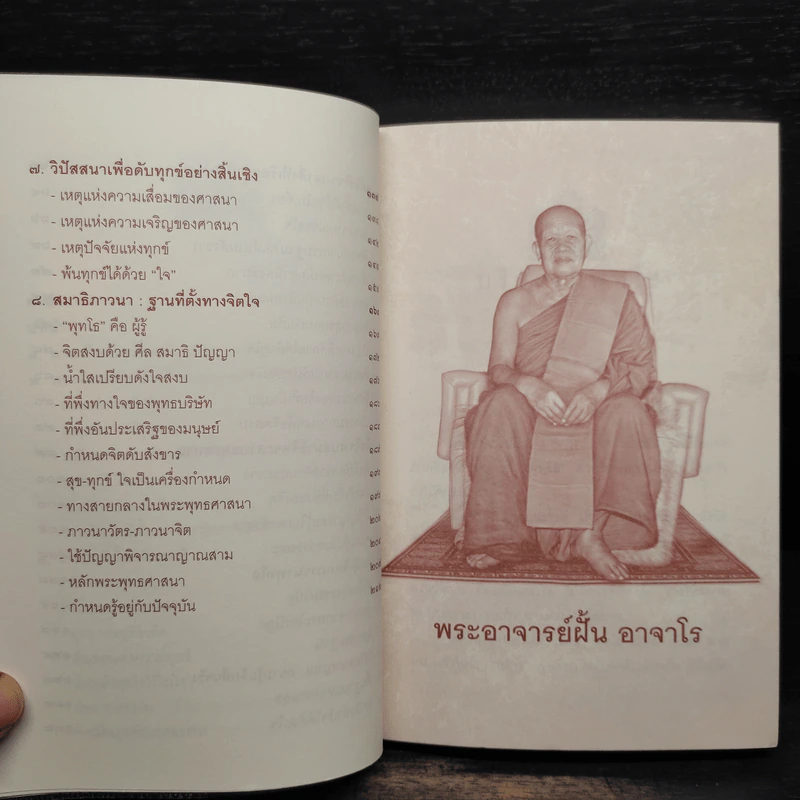 ๗. วิปัสสนาเพื่อดับทุกข์อย่างสิ้นเชิง
- เหตุแห่งความเสื่อมของศาสนา
- เหตุแห่งความเจริญของศาสนา
- เหตุปัจจัยแห่งทุกข์
- พ้นทุกข์ได้ด้วย “ใจ”
๘. สมาธิภาวนา : ฐานที่ตั้งทางจิตใจ
- “พุทโธ” คือ ผู้รู้
- จิตสงบด้วย ศีล สมาธิ ปัญญา
- น้ำใสเปรียบดังใจสงบ
- ที่พึ่งทางใจของพุทธบริษัท
- ที่พึ่งอันประเสริฐของมนุษย์
- กำหนดจิตดับสังขาร
- สุข-ทุกข์ ใจเป็นเครื่องกำหนด
- ทางสายกลางในพระพุทธศาสนา
- ภาวนาวัตร-ภาวนาจิต
- ใช้ปัญญาพิจารณาญาณสาม
- หลักพระพุทธศาสนา
- กำหนดรู้อยู่กับปัจจุบัน
พระอาจารย์ฝั้น อาจาโร